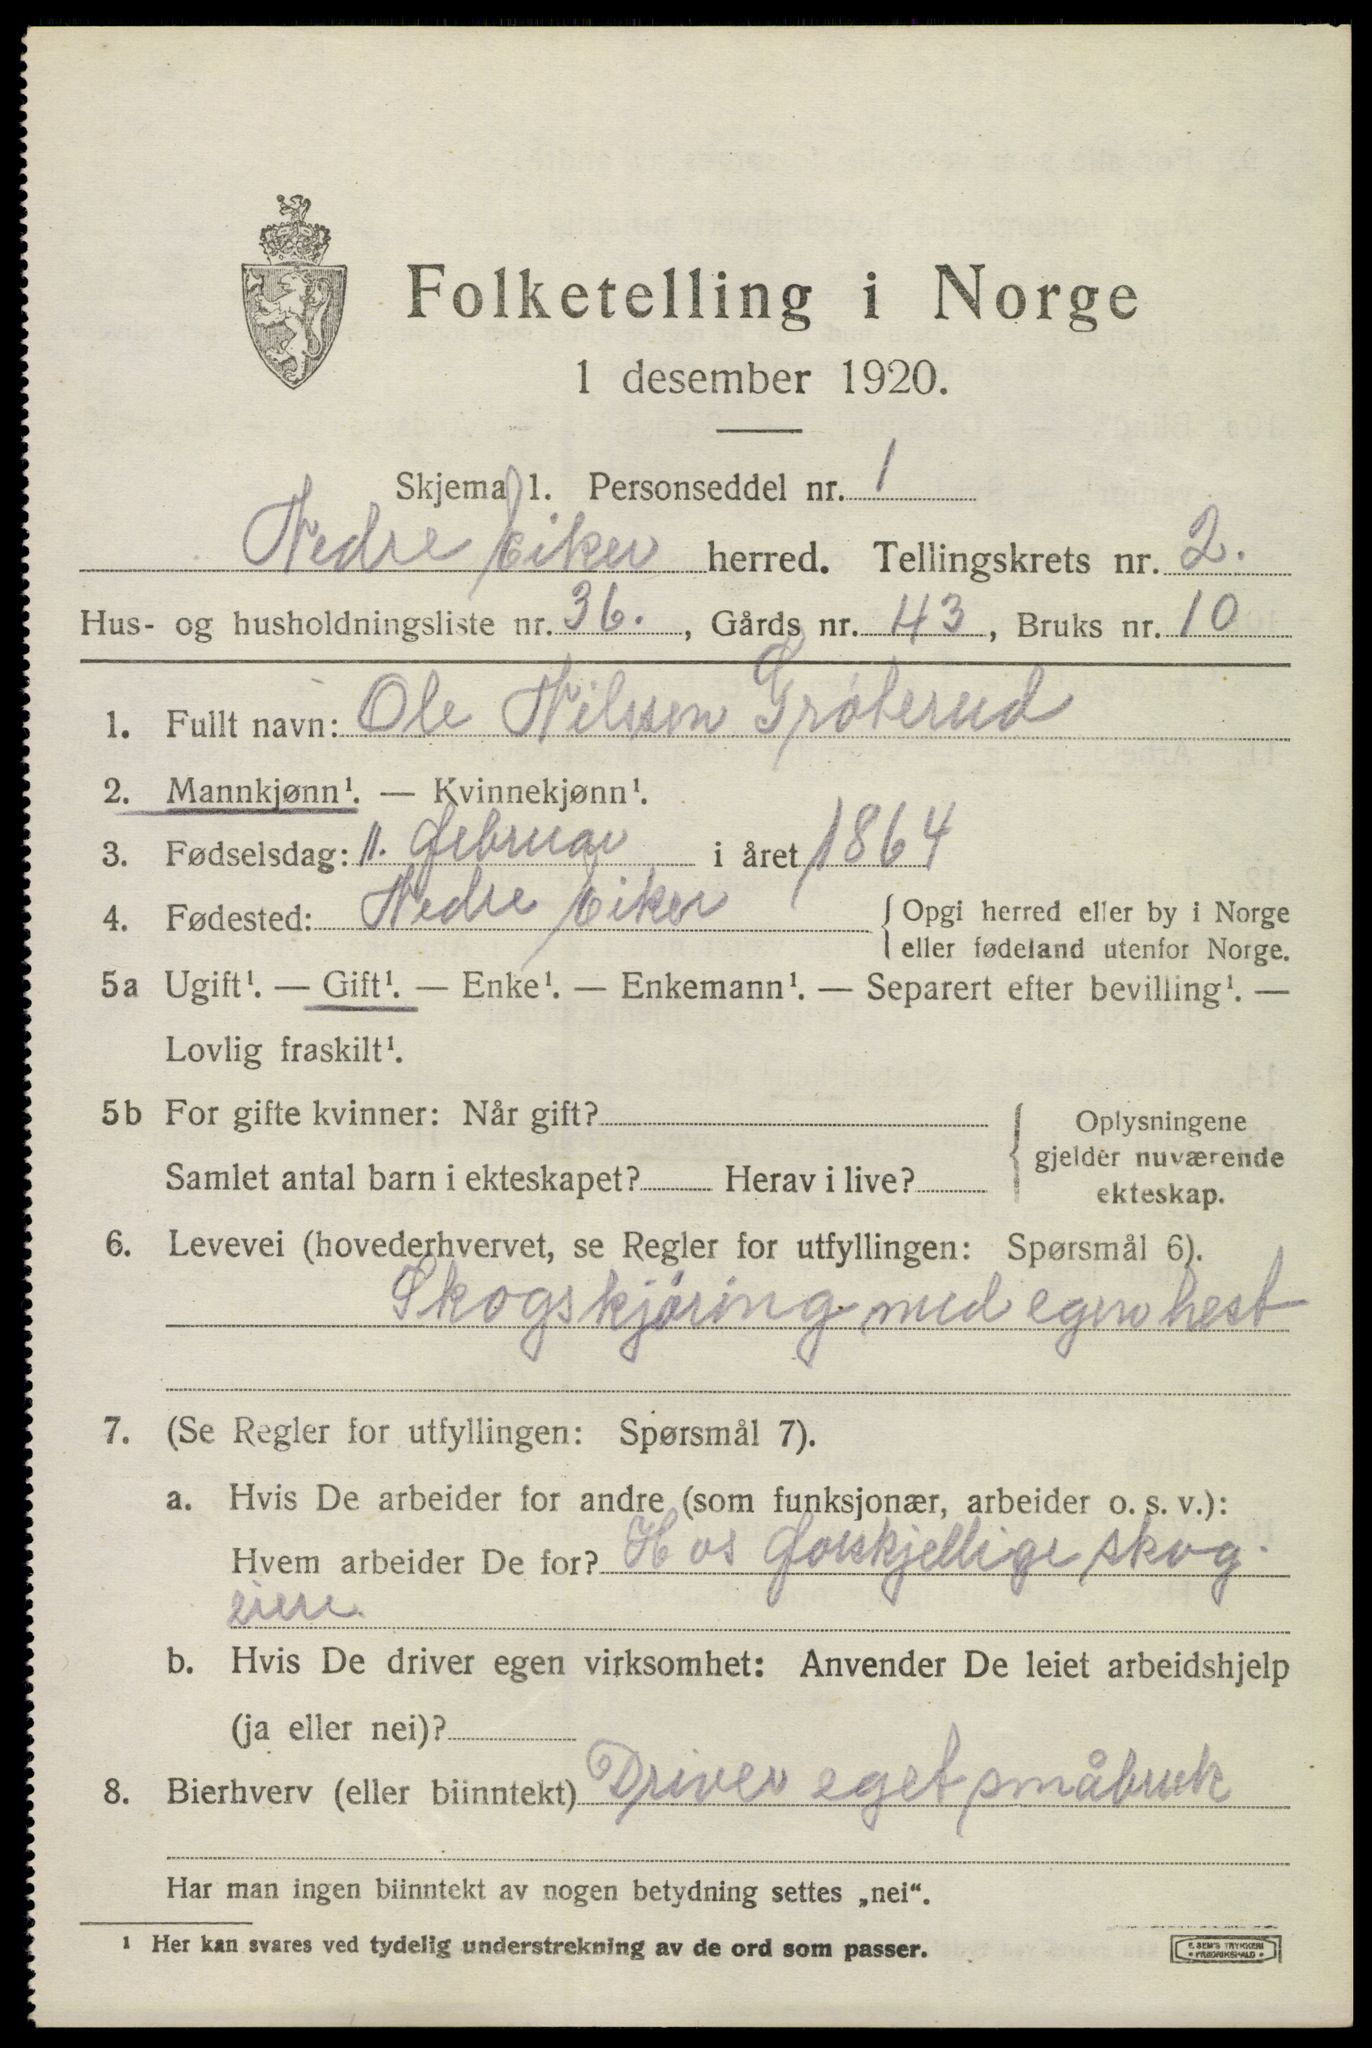 Folketelling i Norge
1 desember 1920.
Skjema 1. Personseddel nr. 1
Nedre Eiker herred. Tellingskrets nr. 2.
Hus- og husholdningsliste nr. 36., Gårds nr. 43, Bruks nr. 10
1. Fullt navn: Ole Nilssen Grøterud
2. Mannkjønn¹. — Kvinnekjønn¹.
3. Fødselsdag: 11. Februar i året 1864
4. Fødested: Nedre Eiker { Opgi herred eller by i Norge
eller fødeland utenfor Norge.
5a Ugift¹. — Gift¹. — Enke¹. — Enkemann¹. — Separert efter bevilling¹. —
Lovlig fraskilt¹.
5b For gifte kvinner: Når gift?
Samlet antal barn i ekteskapet? Herav i live?
Oplysningene
gjelder nuværende
ekteskap.
6. Levevei (hovederhvervet, se Regler for utfyllingen: Spørsmål 6).
Skogskjøring med egen hest
7. (Se Regler for utfyllingen: Spørsmål 7).
a. Hvis De arbeider for andre (som funksjonær, arbeider o. s. v.):
Hvem arbeider De for? Hos Forskjellige skog-
eiere
b. Hvis De driver egen virksomhet: Anvender De leiet arbeidshjelp
(ja eller nei)?
8. Bierhverv (eller biinntekt) Driver eget småbruk
Har man ingen biinntekt av nogen betydning settes „nei“.
¹ Her kan svares ved tydelig understrekning av de ord som passer.
E. SEM'S TRYKKERI
• FREDRIKSHALD •